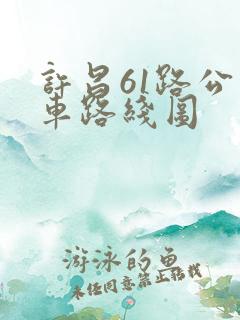 許昌61路公
車路綫圖
游泳的魚
未经同意禁止转载